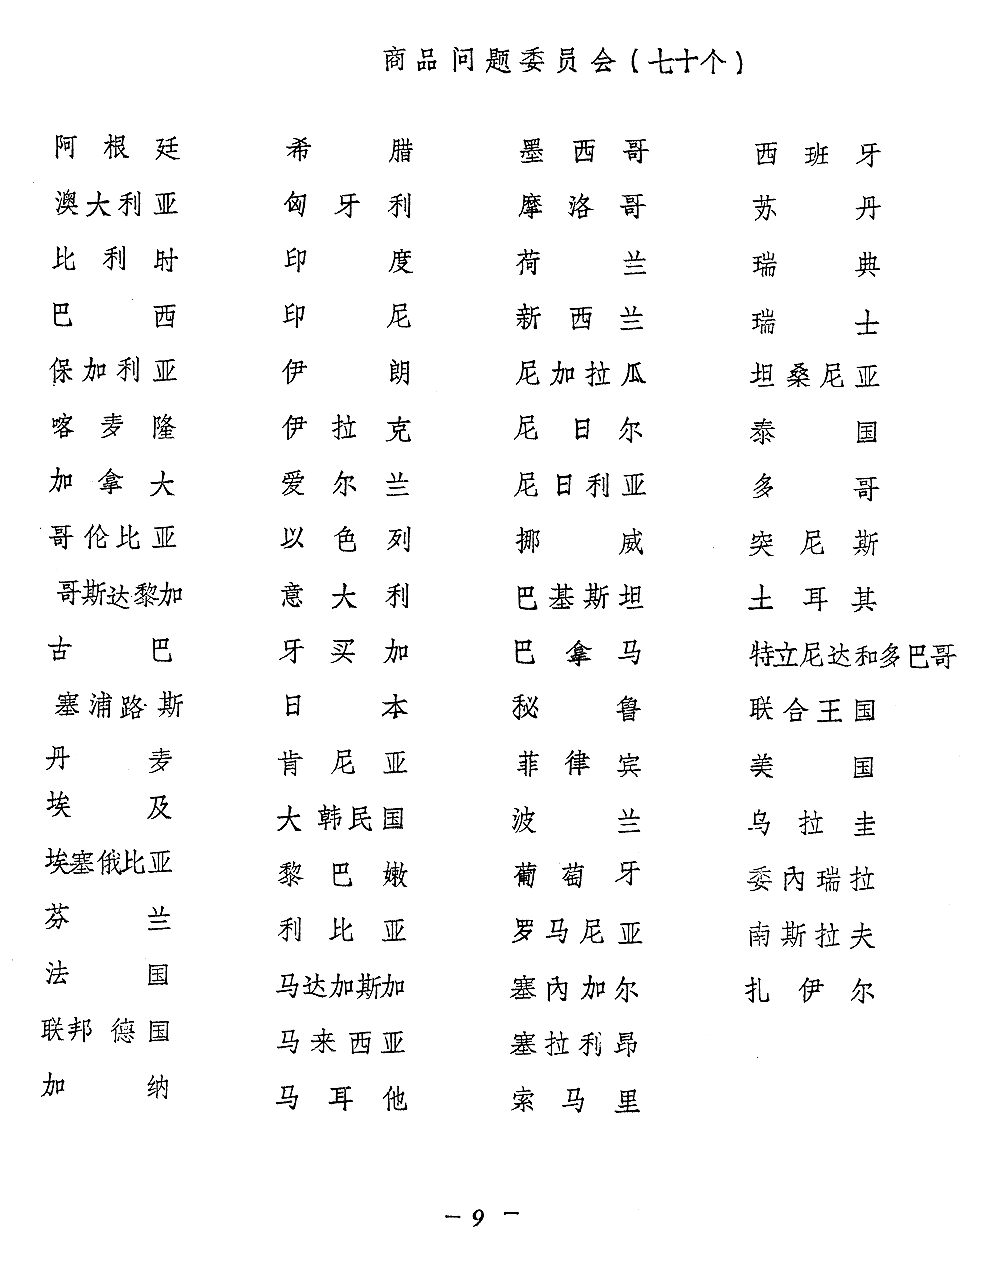 商品问题委员会(七十个)
阿根廷 希腊 墨西哥 西班牙
澳大利亚 匈牙利 摩洛哥 苏丹
比利时 印度 荷兰 瑞典
巴西 印尼 新西兰 瑞士
保加利亚 伊朗 尼加拉瓜 坦桑尼亚
喀麦隆 伊拉克 尼日尔 泰国
加拿大 爱尔兰 尼日利亚 多哥
哥伦比亚 以色列 挪威 突尼斯
哥斯达黎加 意大利 巴基斯坦 土耳其
古巴 牙买加 巴拿马 特立尼达和多巴哥
塞浦路斯 日本 秘鲁 联合王国
丹麦 肯尼亚 菲律宾 美国
埃及 大韩民国 波兰 乌拉圭
埃塞俄比亚 黎巴嫩 葡萄牙 委內瑞拉
芬兰 利比亚 罗马尼亚 南斯拉夫
法国 马达加斯加 塞內加尔 扎伊尔
联邦德国 马来西亚 塞拉利昂
加纳 马耳他 索马里
- 9 -